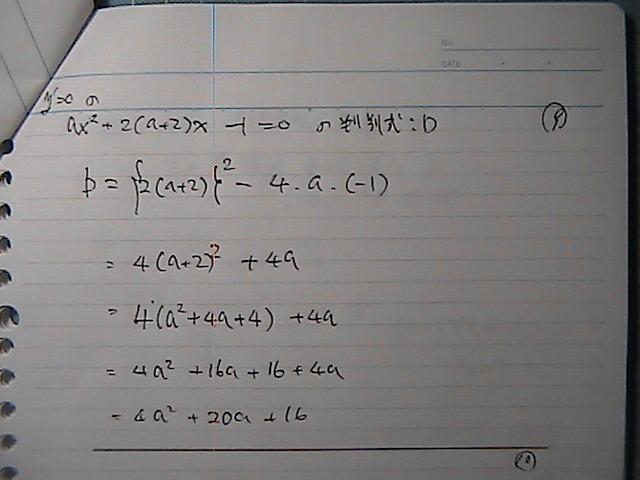 No.
DATE
y=0 の
ax² + 2(a+2)x -1 = 0 の判別式:D
D = {2(a+2)}² - 4・a・(-1)
= 4(a+2)² + 4a
= 4(a²+4a+4) + 4a
= 4a² + 16a + 16 + 4a
= 4a² + 20a + 16